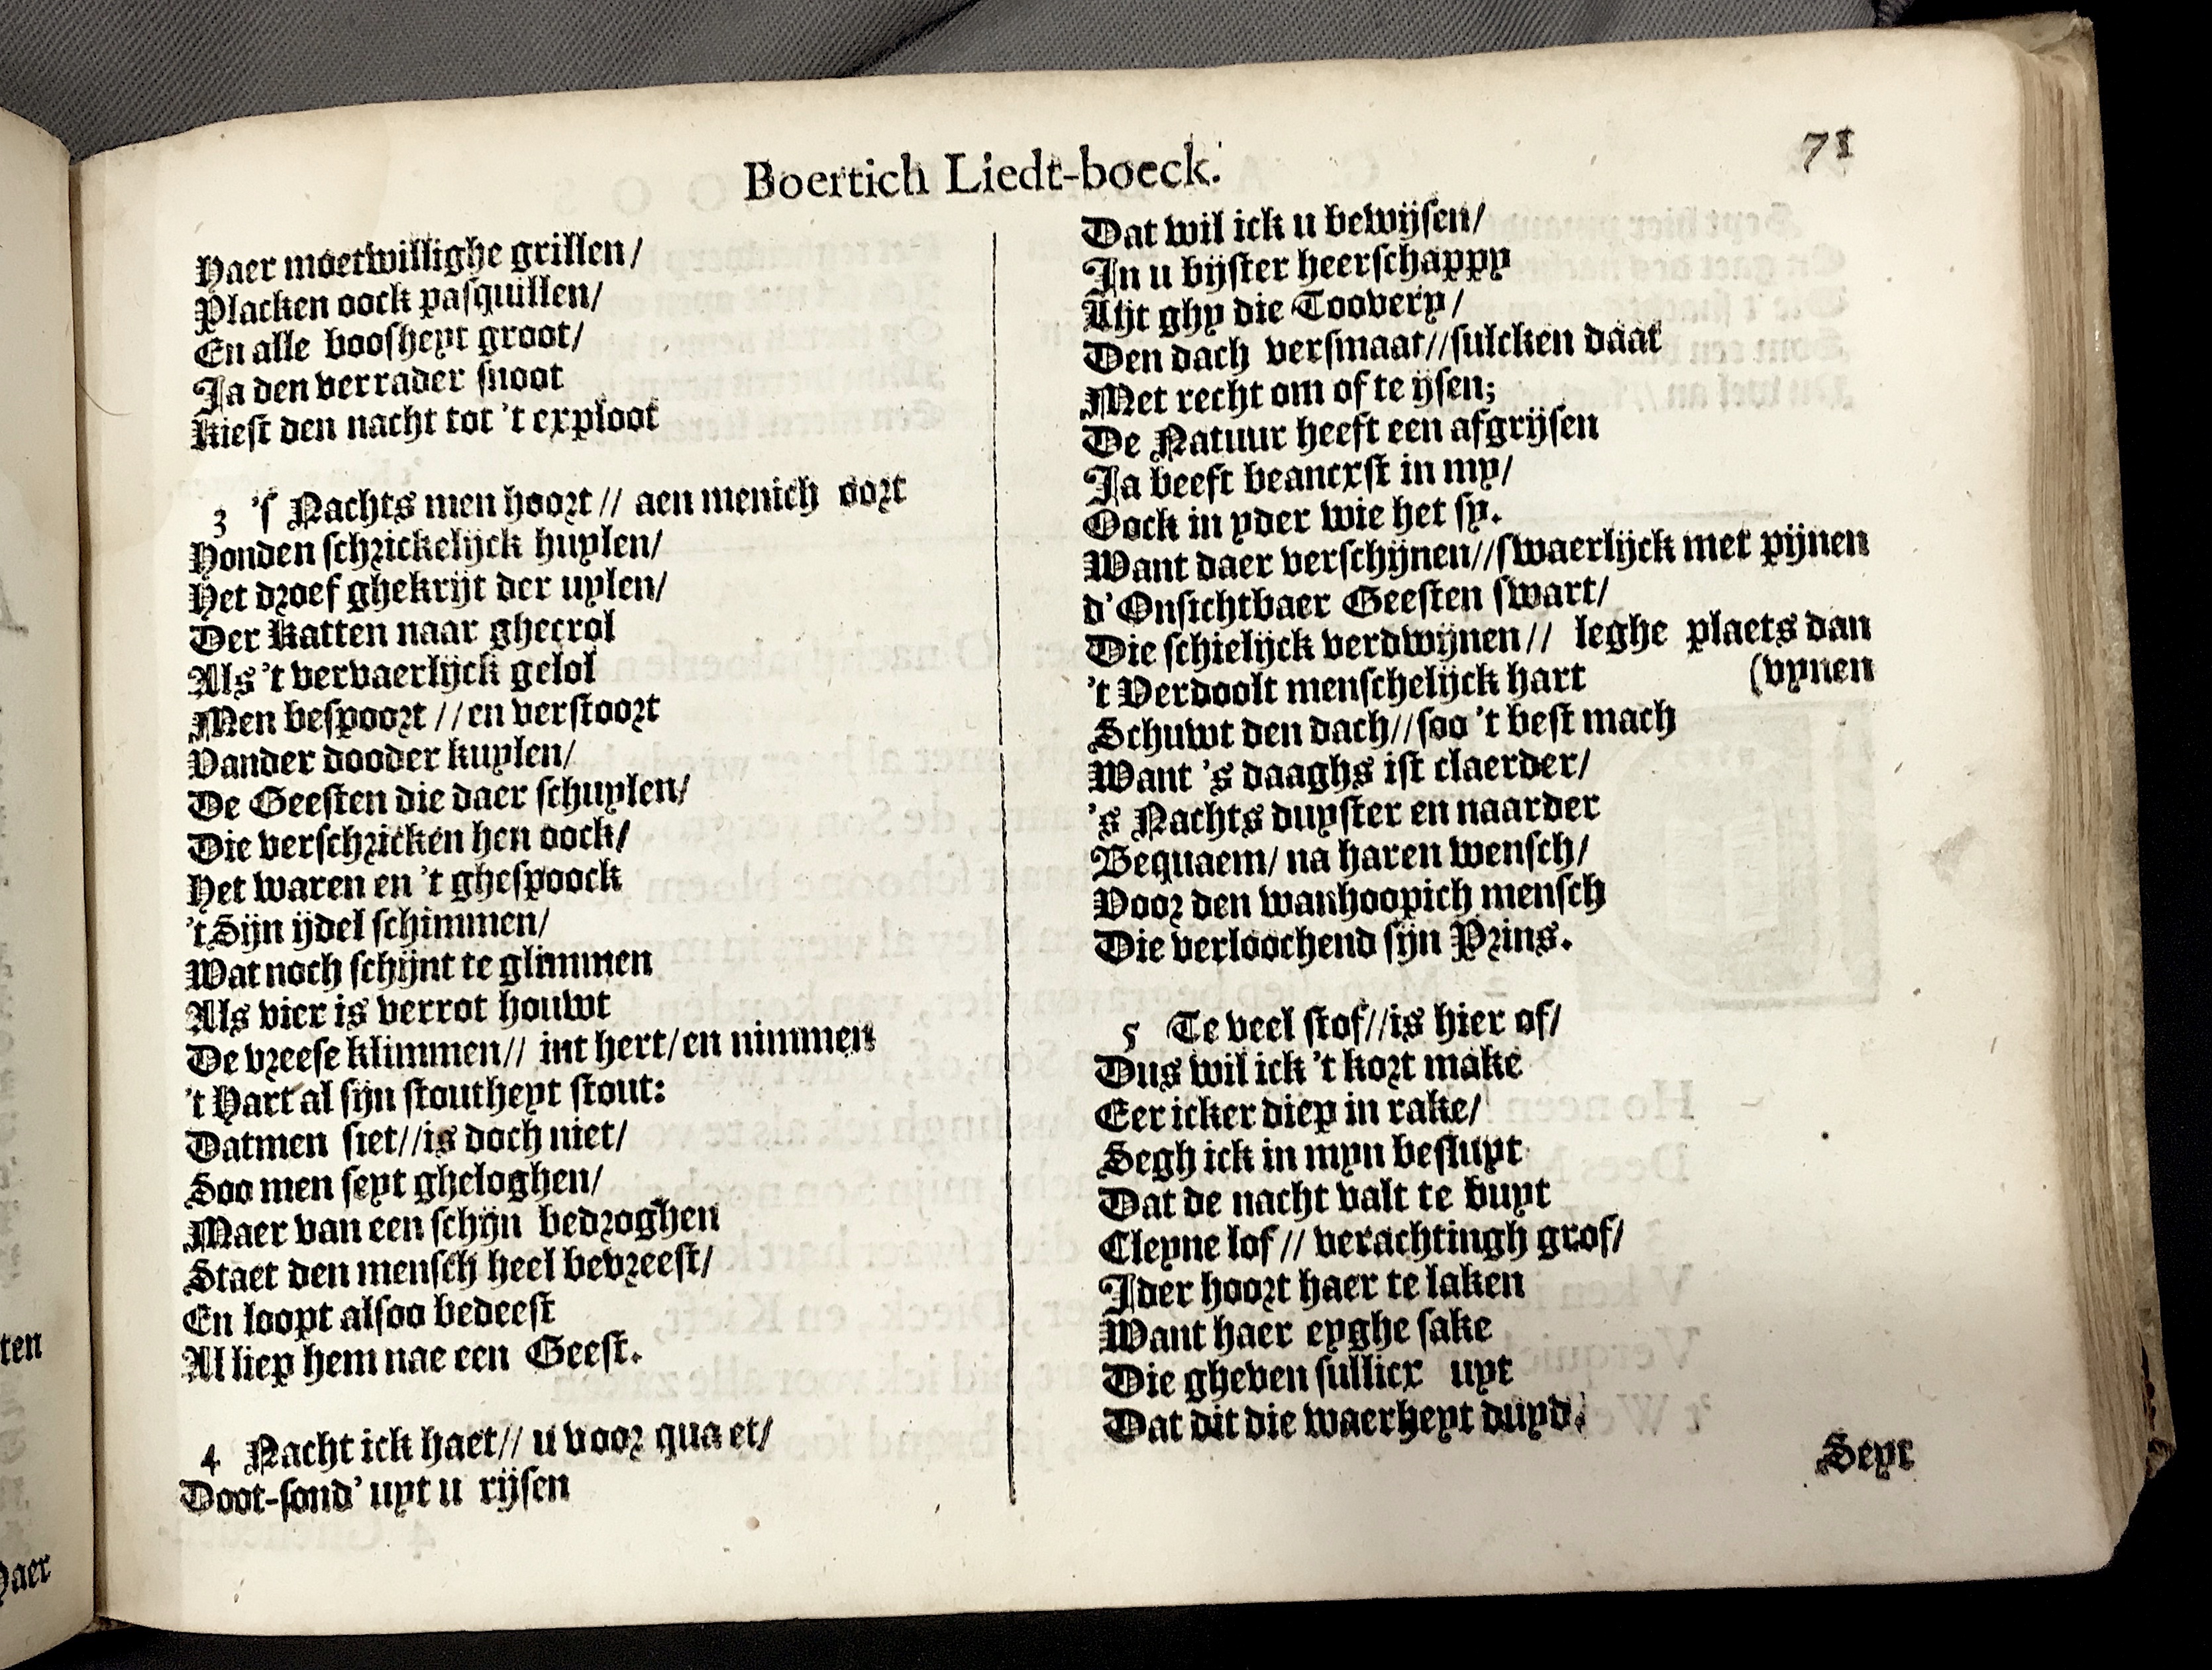 Boertich Liedt-boeck.
71
Haer moetwillighe grillen/
Placken oock pasquillen/
En alle boosheyt groot/
Ja den verrader snoot
Kiest den nacht tot 't exploot
3 's Nachts men hoort // aen menich oort
Honden schrickelijck huylen/
Het droef ghekrijt der uylen/
Der Katten naar ghecrol
Als 't vervaerlijck gelol
Men bespoort // en verstoort
Vander dooder kuylen/
De Geesten die daer schuylen/
Die verschricken hen oock/
Het waren en 't ghespoock
't Sijn ijdel schimmen/
Wat noch schijnt te glimmen
Als vier is verrot houwt
De vreese klimmen// int hert/en nimmen
't Hart al sijn stoutheyt stout:
Datmen siet//is doch niet/
Soo men seyt gheloghen/
Maer van een schijn bedroghen
Staet den mensch heel bevreest/
En loopt alsoo bedeest
Al liep hem nae een Geest.
4 Nacht ick haet// u voor quaet/
Doot-sond' uyt u rijsen
Dat wil ick u bewijsen/
In u bijster heerschappy
Lijt ghy die Toovery/
Den dach versmaat//sulcken daat
Met recht om of te ijsen;
De Natuur heeft een afgrijsen
Ja beeft beancxst in my/
Oock in yder wie het sy.
Want daer verschijnen//swaerlijck met pijnen
d'Onsichtbaer Geesten swart/
Die schielijck verdwijnen// leghe plaets dan
't Verdoolt menschelijck hart (vynen
Schuwt den dach//soo 't best mach
Want 's daaghs ist claerder/
's Nachts duyster en naarder
Bequaem/ na haren wensch/
Voor den wanhoopich mensch
Die verloochend sijn Prins.
5 Te veel stof//is hier of/
Dus wil ick 't kort make
Eer icker diep in rake/
Segh ick in myn besluyt
Dat de nacht valt te buyt
Cleyne lof // verachtingh grof/
Ider hoort haer te laken
Want haer eyghe sake
Die gheven sullicx uyt
Dat dit die waerheyt duyd.
Seyt
ten
Haer